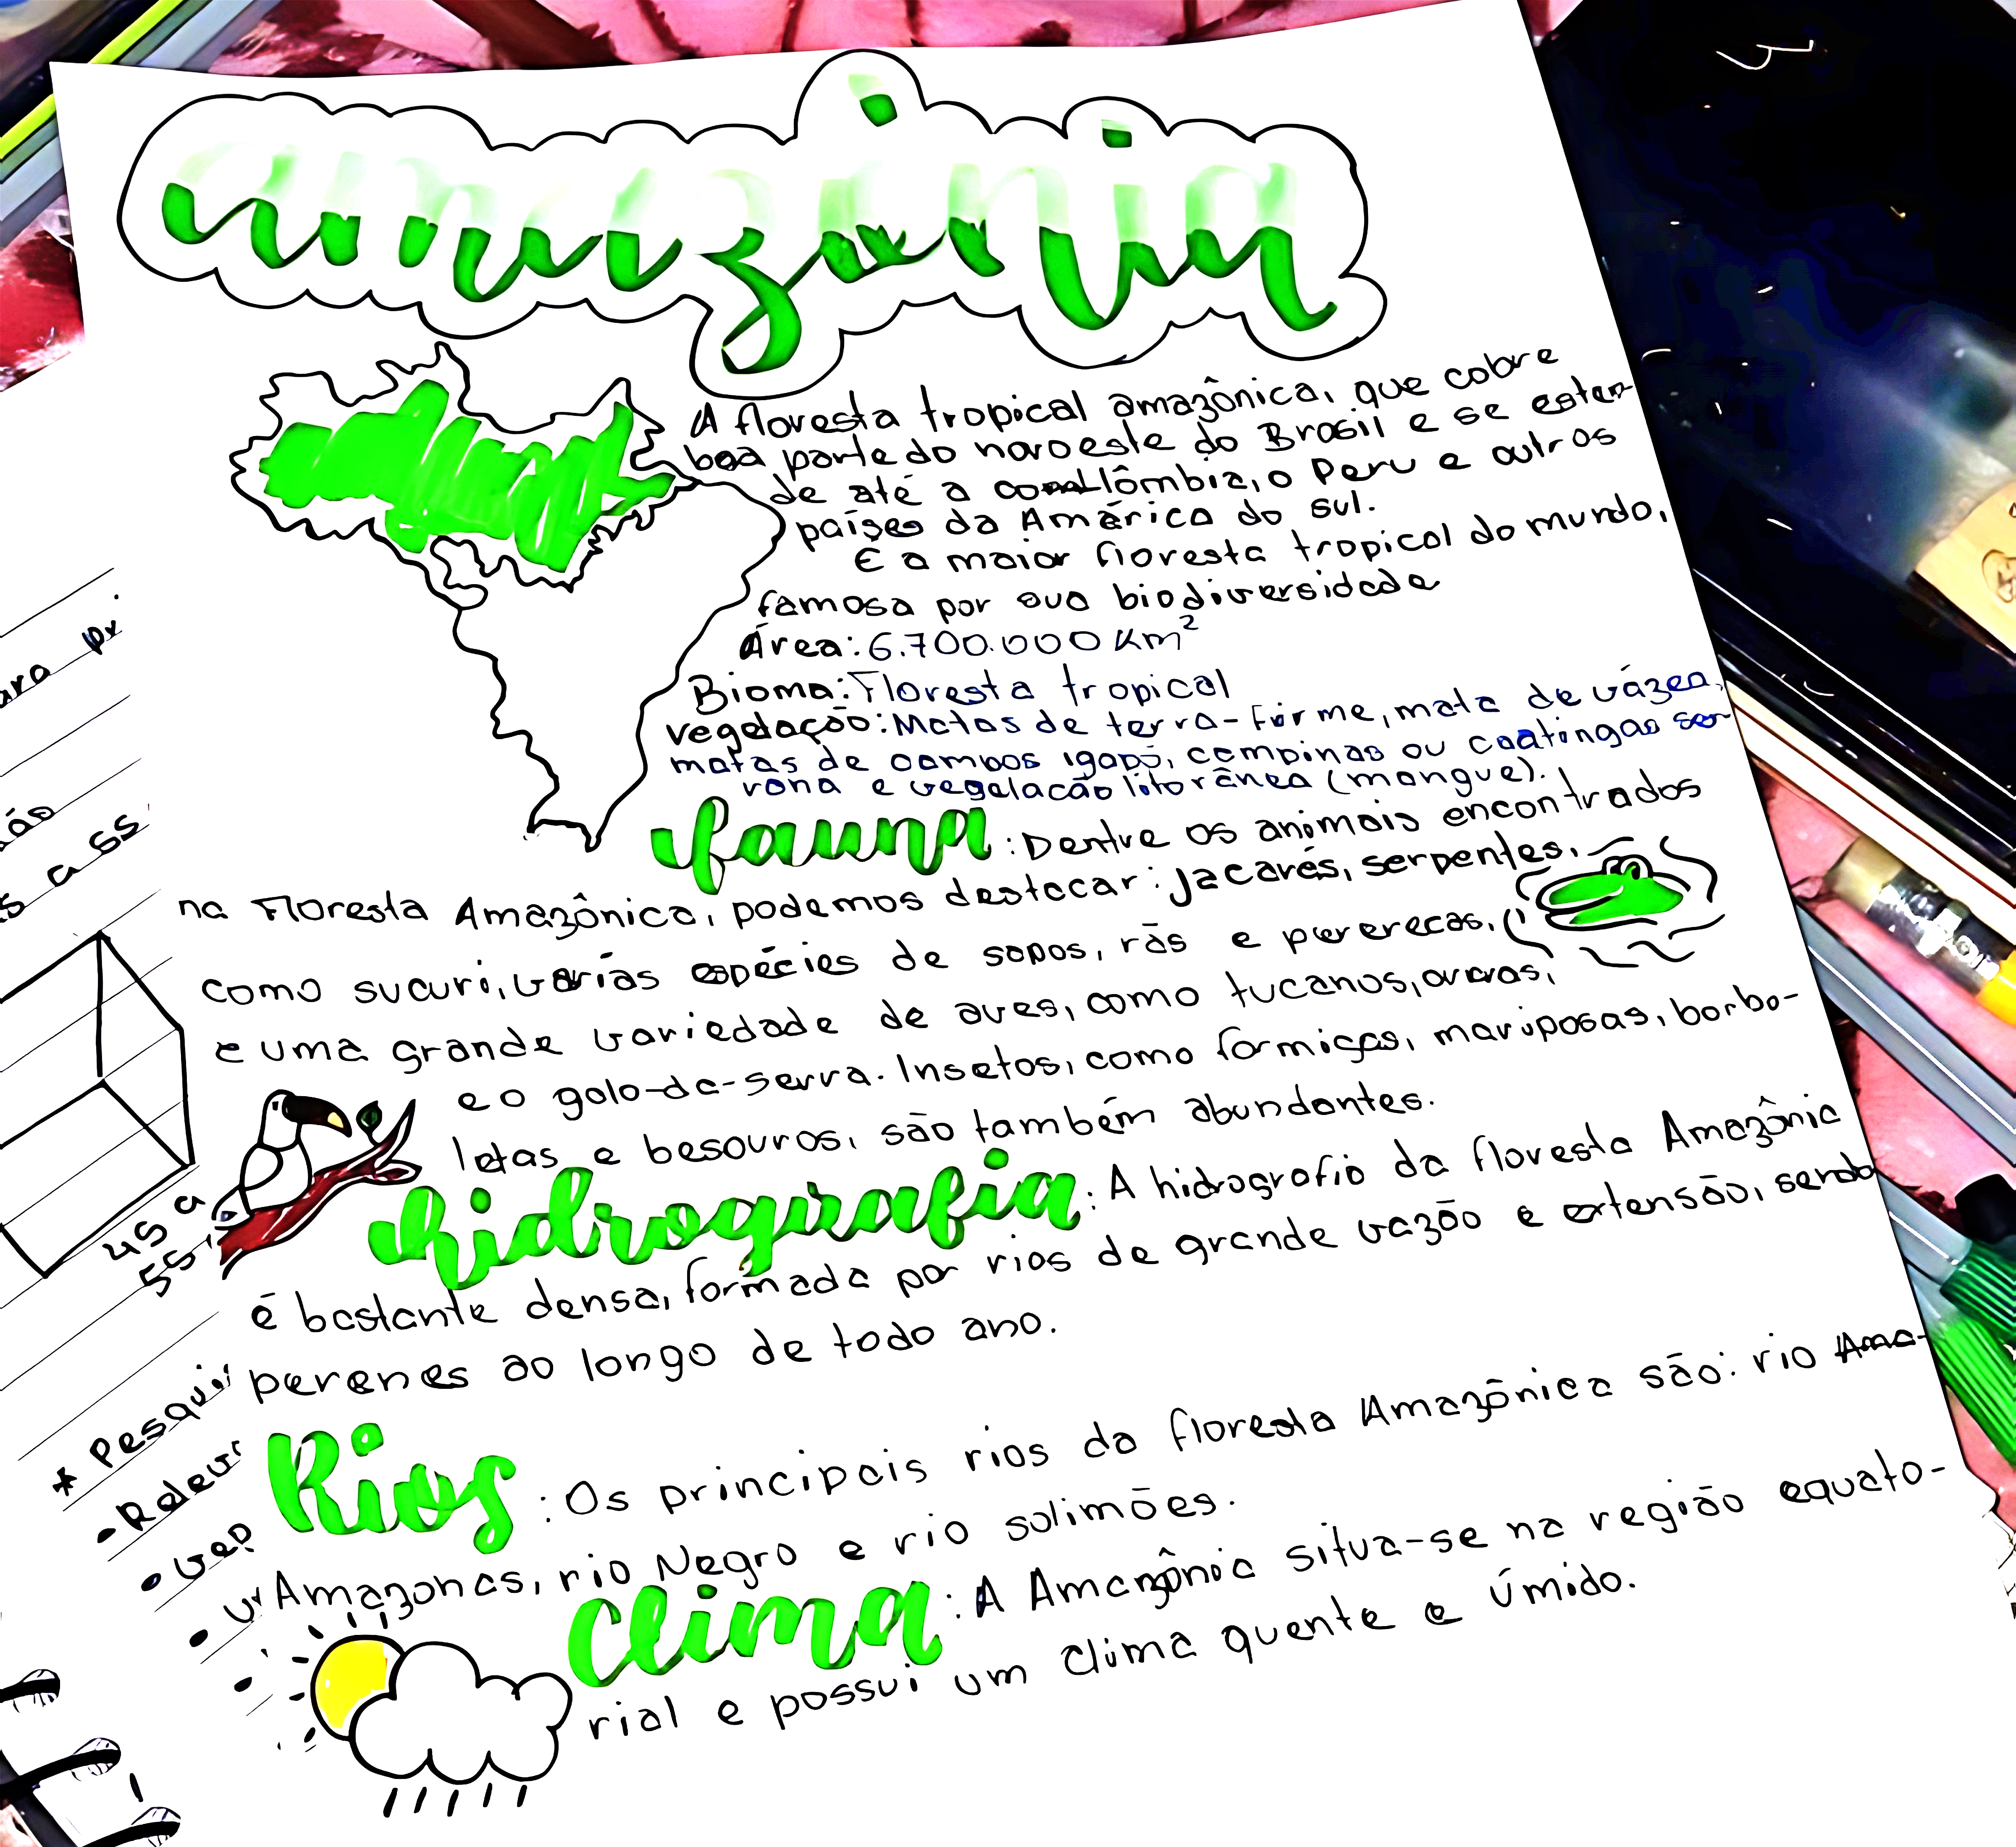 amazônia
A floresta tropical amazônica, que cobre
boa parte do noroeste do Brasil e se esten-
de até a colômbia, o Peru e outros
países da América do sul.
É a maior floresta tropical do mundo,
famosa por sua biodiversidade
Área: 6.700.000 Km²
Bioma: Floresta tropical
vegetação: Matas de terra-firme, mata de vázea,
matas de campos igapó, campinas ou caatingas
e vegetação litorânea (mangue).
fauna: Dentre os animais encontrados
na Floresta Amazônica, podemos destacar: jacarés, serpentes,
como sucuri, varias espécies de sapos, rãs e pererecas,
e uma grande variedade de aves, como tucanos, araras,
e o galo-da-serra. Insetos, como formigas, mariposas, borbo-
letas e besouros, são também abundantes.
hidrografia: A hidrografia da floresta Amazônic
é bastante densa, formada por rios de grande vazão e extensão, sendo
perenes ao longo de todo ano.
Rios: Os principais rios da floresta Amazônica são: rio Ama-
Amazonas, rio Negro e rio solimões.
Clima: A Amazônia situa-se na região equato-
rial e possui um clima quente e úmido.
45 a
55
* Pesqui